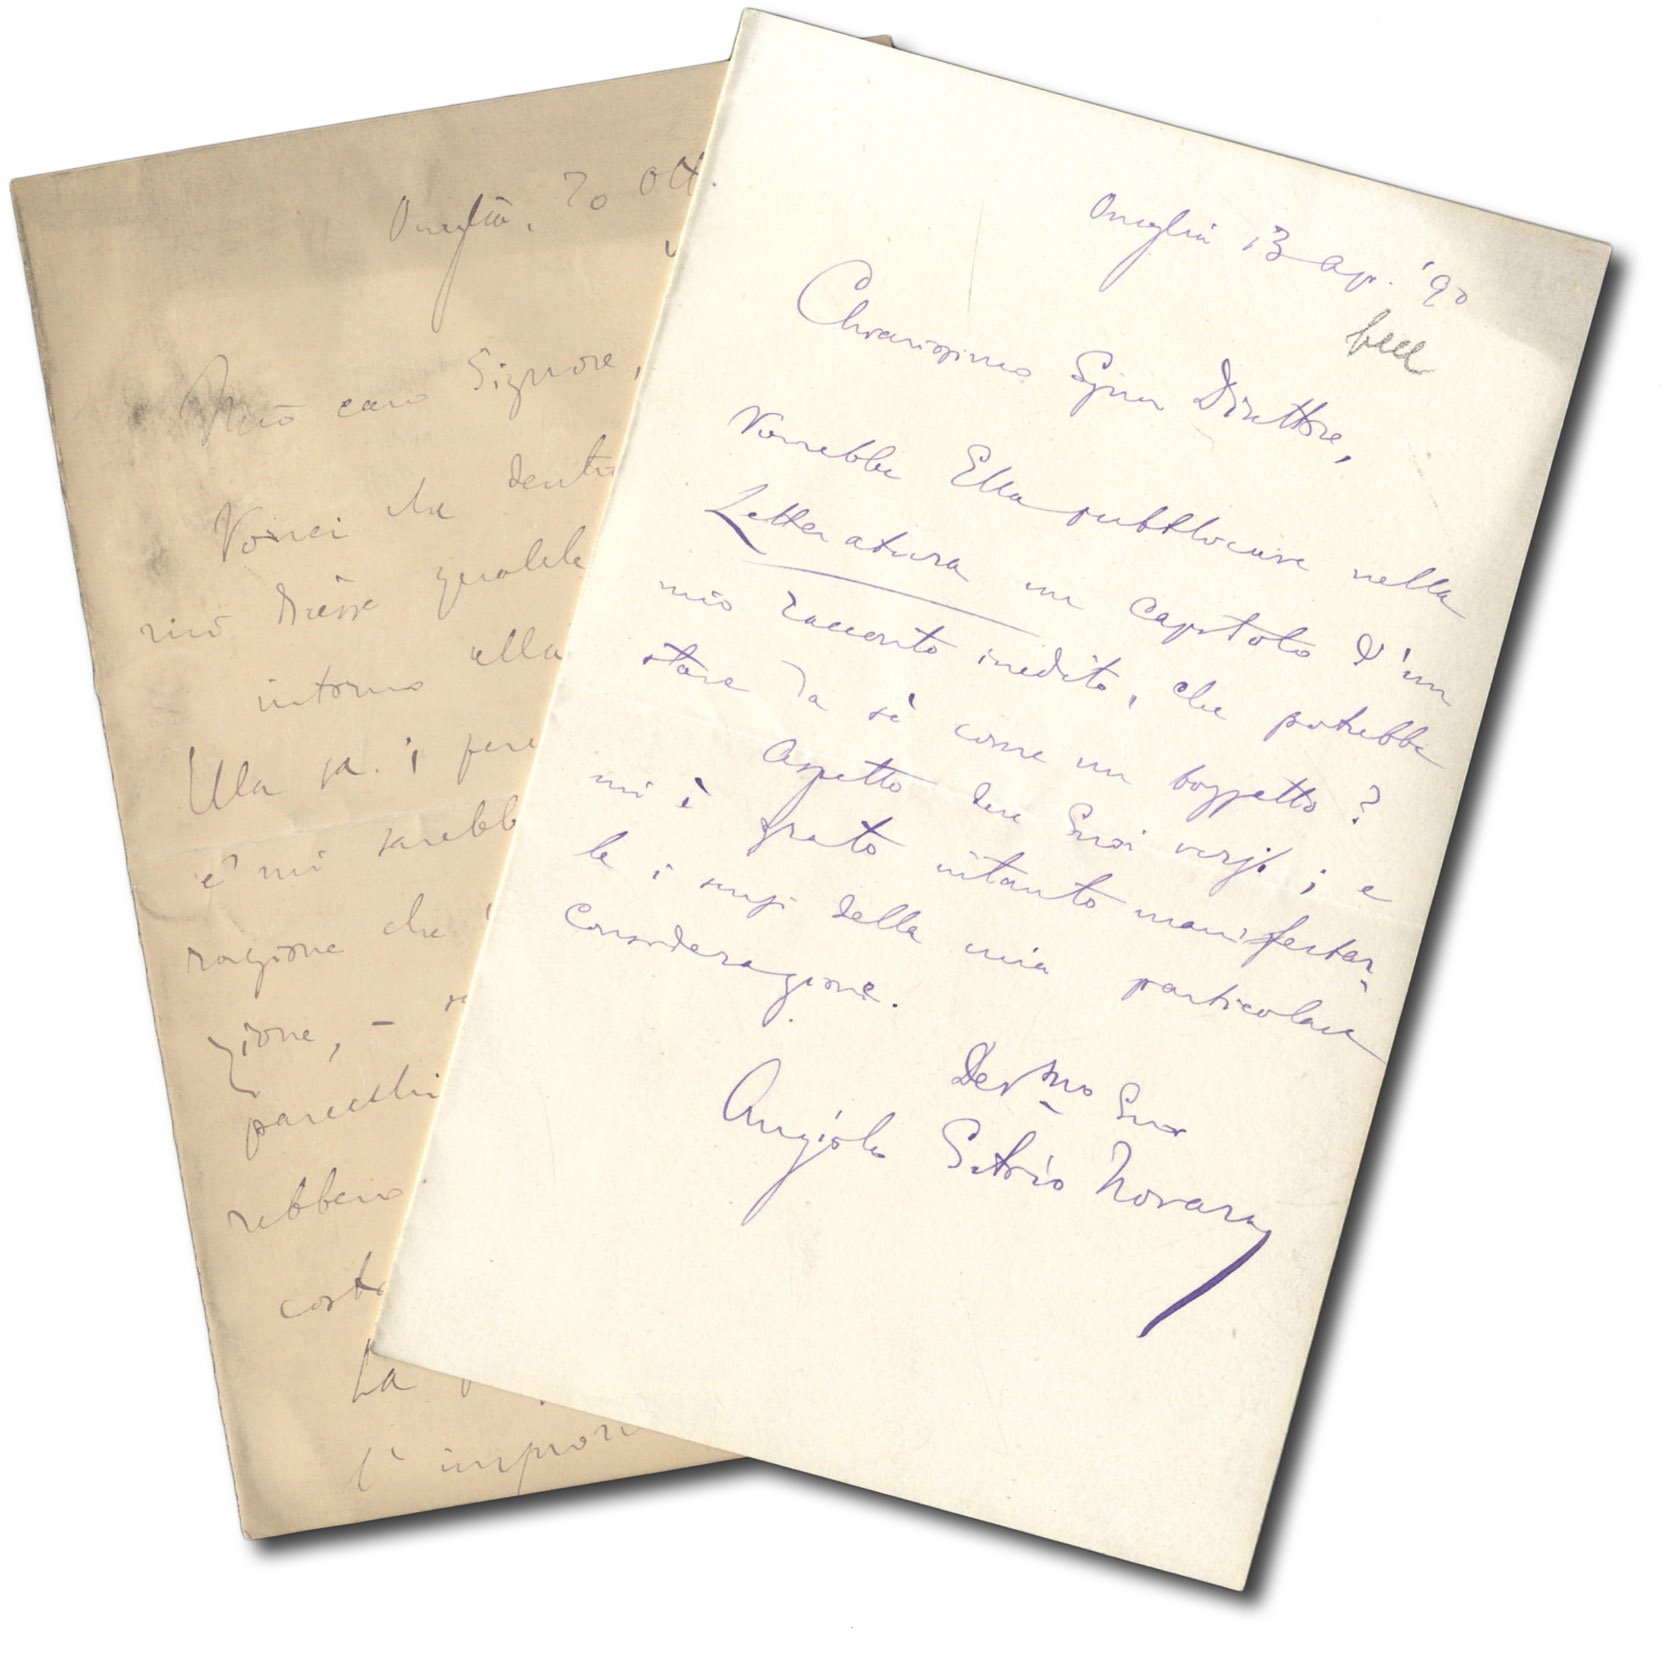 Oneglia, 30 Ott
Mio caro Signore,
Vorrei che dentro
mi dicesse qualche
intorno alla
Ella sa. i
e mi sarebb
ragione che
zione, –
parecchi
rebbero
costr
La
l'impron
Oneglia 13 ap. '90
Chiarissimo Signor Direttore,
Vorrebbe Ella pubblicare nella
Letteratura un capitolo d'un
mio racconto inedito, che potrebbe
stare da sè come un bozzetto?
Aspetto due Suoi versi; e
mi è grato intanto manifestar-
le i sensi della mia particolare
considerazione.
Dev.mo Suo
Angiolo Silvio Novaro